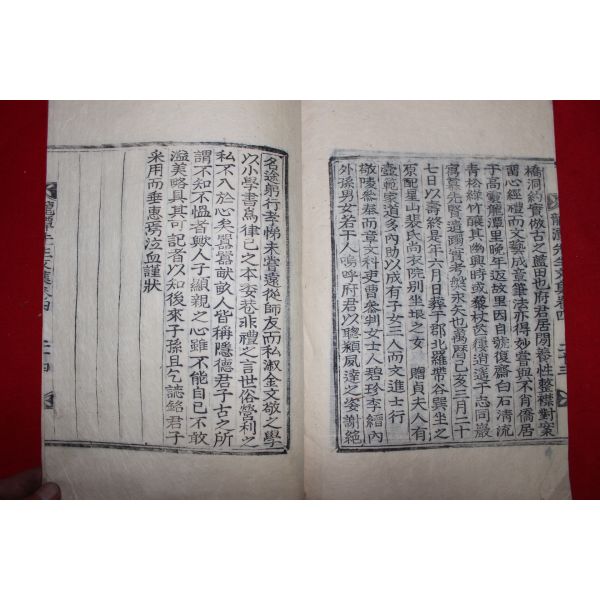 橋洞約實倣古之藍田也府君居閒養性整襟對案
電心經禮而文藝咸章筆法亦得妙嘗與不肖僑居
于高靈龍潭里晩年返故里因自號復齋白石清流
青松綠竹釀其幽興時或黎杖悠然逍遙于志同巖
寓慕先賢遺躅實考槃永矢也萬曆己亥三月二十
七日以壽終是年六月日葬于郡北羅帶谷巽坐之
原配星山裴氏尚衣院別坐垠之女 贈貞夫人有
壼範家道多內助以成有子女三人而文進士行
敬陵參奉而章文科吏曹參判女士人碧珍李縉內
外孫男女若干人嗚呼府君以聰穎夙達之姿謝絶
龍潭先生文集卷四 二十三
名途躬行孝悌未嘗遠從師友而私淑金文敬之學
以小學書爲律己之本委巷非禮之言世俗營利之
私不入於心矣囂囂畎畝人皆稱隱德君子古之所
謂不知不慍者歟人子顯親之心雖不能自已不敢
溢美略具其可記者以知後來子孫且乞誌銘君子
采用而垂惠焉泣血謹狀
龍潭先生文集卷四 二十四